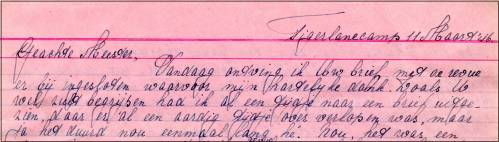 Tjaerlanecamp 11 Maart '56
Geachte Meester,
Vandaag ontving ik Uw brief met de revue
er bij ingesloten waarvoor mijn hartelijke dank. Zoals U
wel zult begrijpen had ik al een tijdje naar een brief uitge-
zien, daar er al een aardig tijdje over verlopen was, maar
ja het duurd nou eenmaal lang hè. Nou, het was een